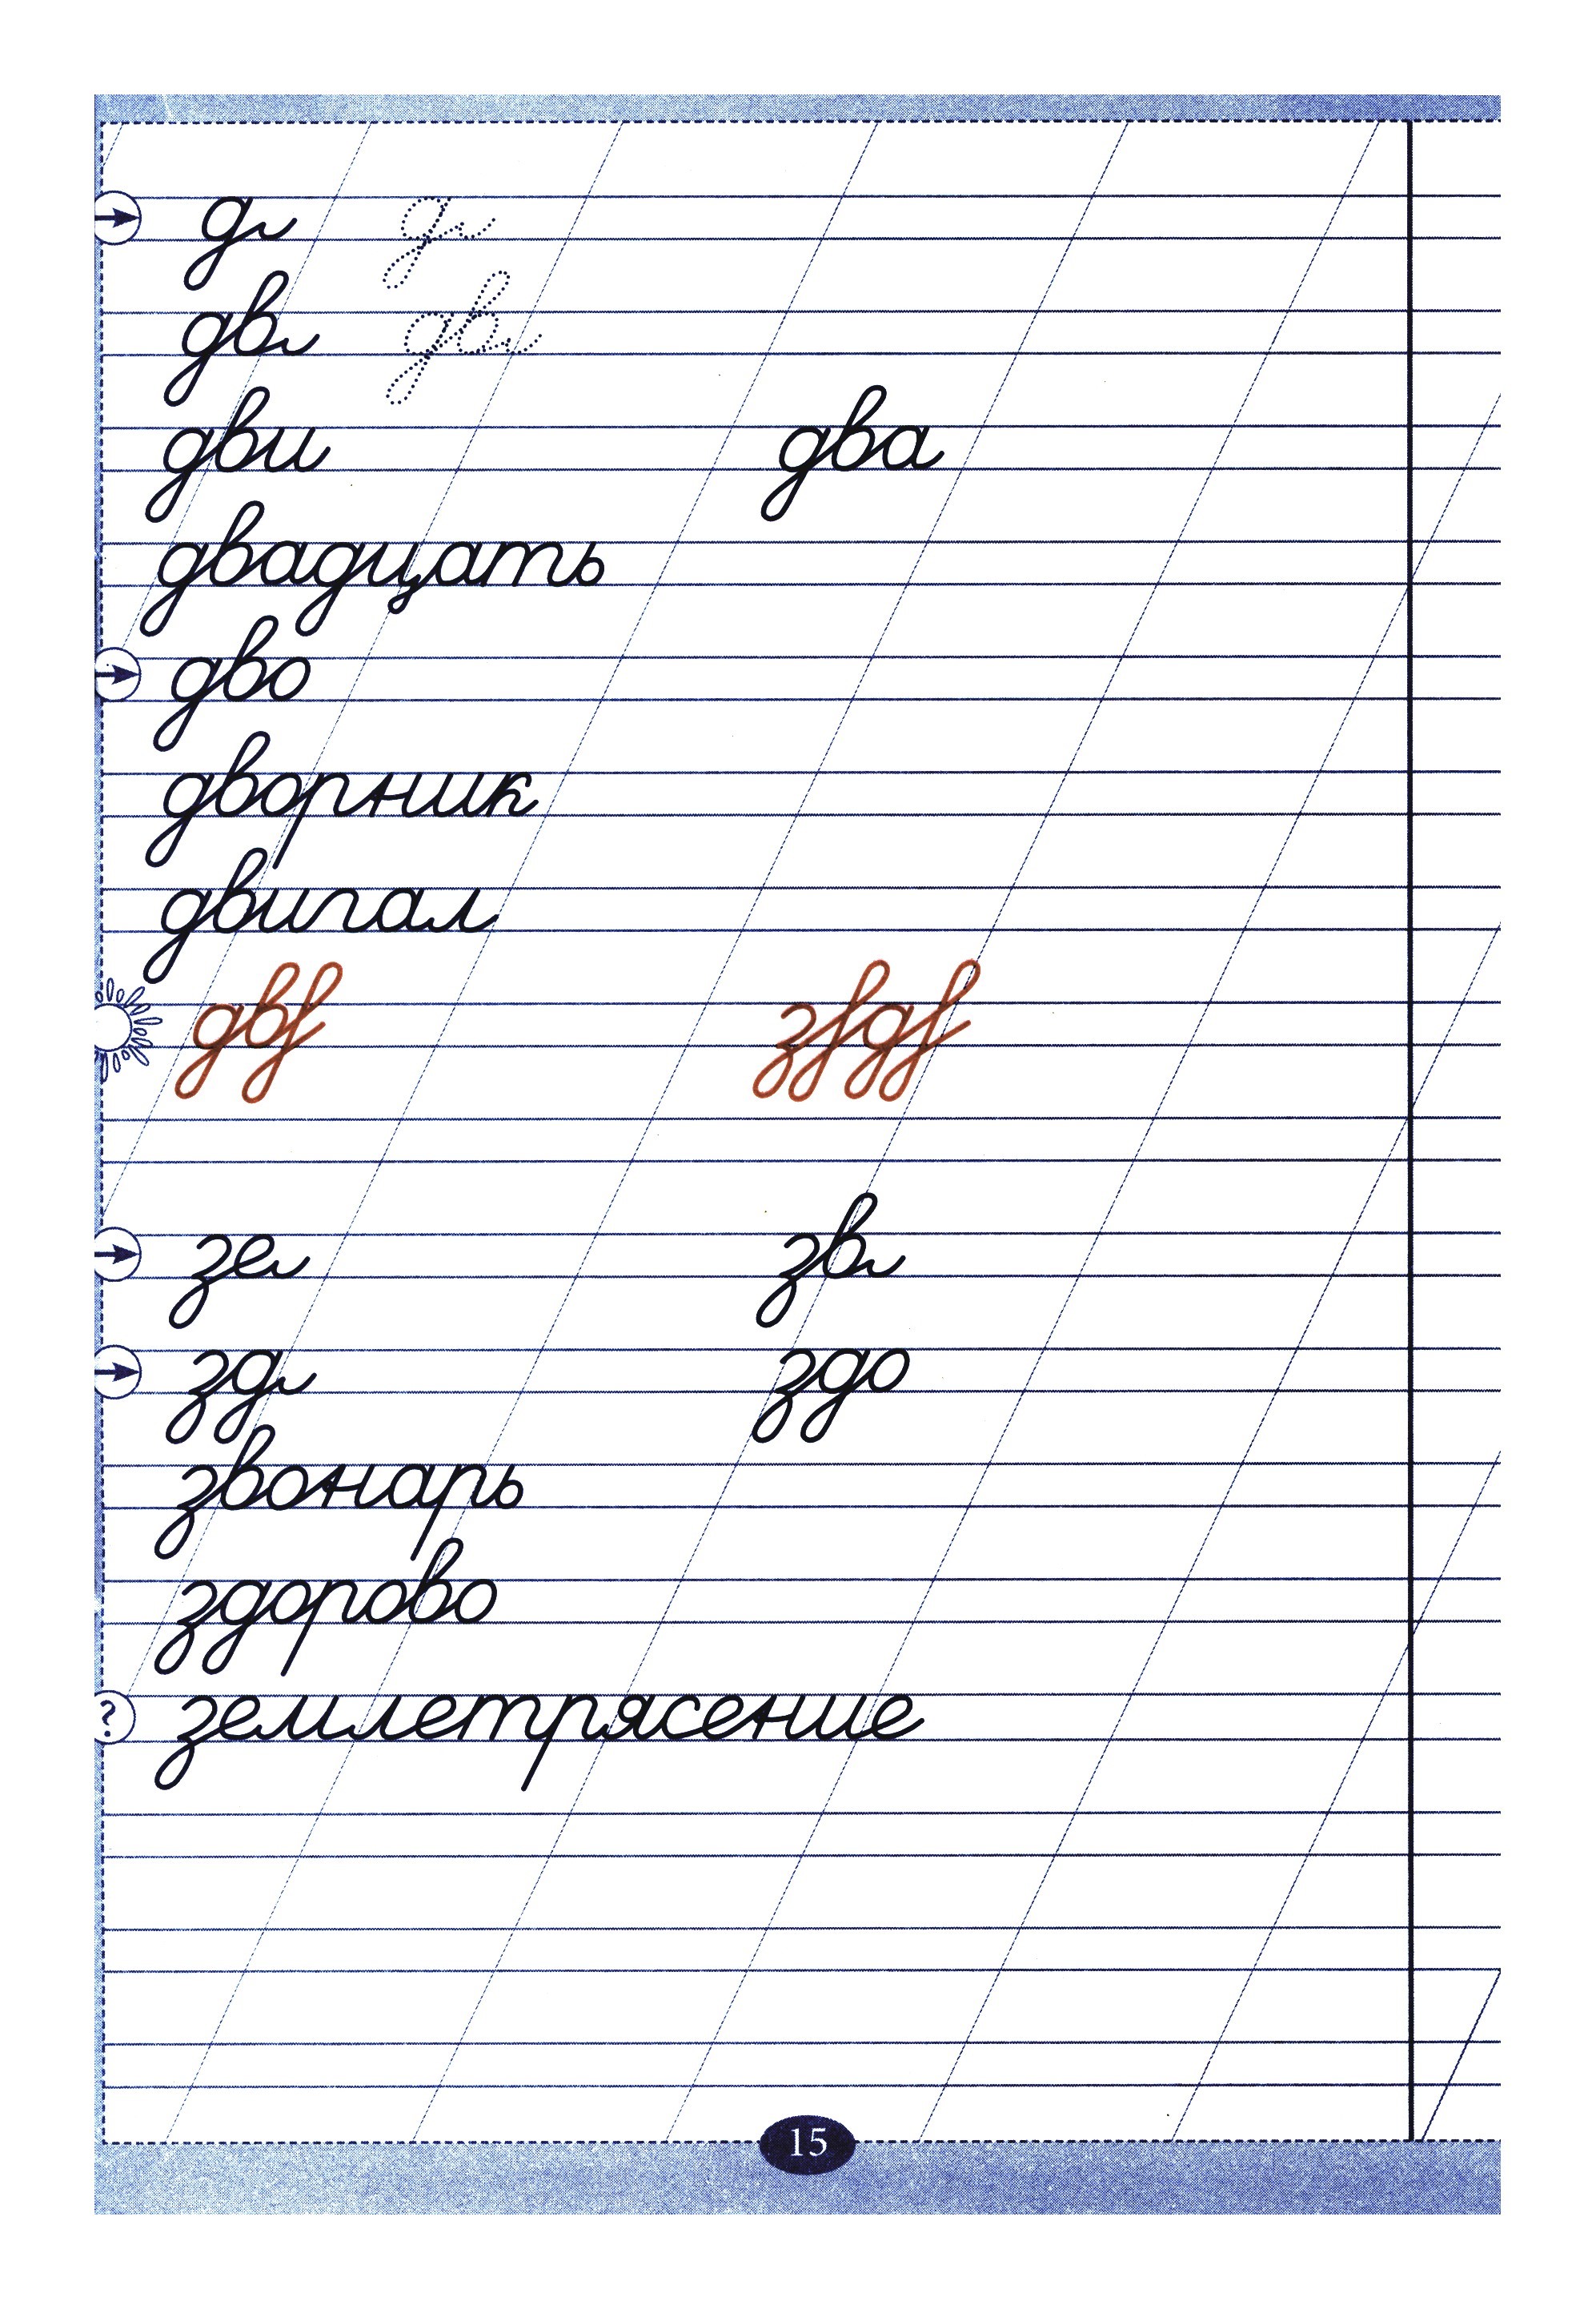 д д
дв дв
дви два
двадцать
дво
дворник
двигал
дв
зе зв
зд здо
звонарь
здорово
?
землетрясение
15